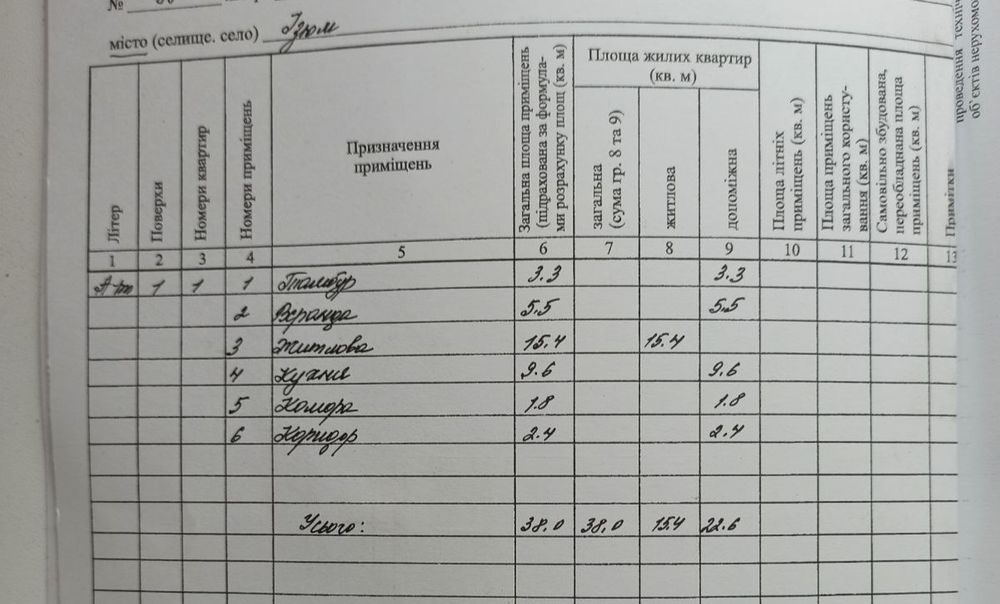 №
місто (селище. село) Ізюм
Літер
Поверхи
Номери квартир
Номери приміщень
Призначення
приміщень
Загальна площа приміщень
(підрахована за формула-
ми розрахунку площ (кв. м)
Площа жилих квартир
(кв. м)
загальна
(сума гр. 8 та 9)
житлова
допоміжна
Площа літніх
приміщень (кв. м)
Площа приміщень
загального користу-
вання (кв. м)
Самовільно збудована,
переобладнана площа
приміщень (кв. м)
Примітки
проведення техніч
об`єктів нерухомо
1 2 3 4 5 6 7 8 9 10 11 12 13
1 1 1 Тамбур 3.3 3.3
2 Веранда 5.5 5.5
3 Житлова 15.4 15.4
4 Кухня 9.6 9.6
5 Комора 1.8 1.8
6 Коридор 2.4 2.4
Усього: 38.0 38.0 15.4 22.6